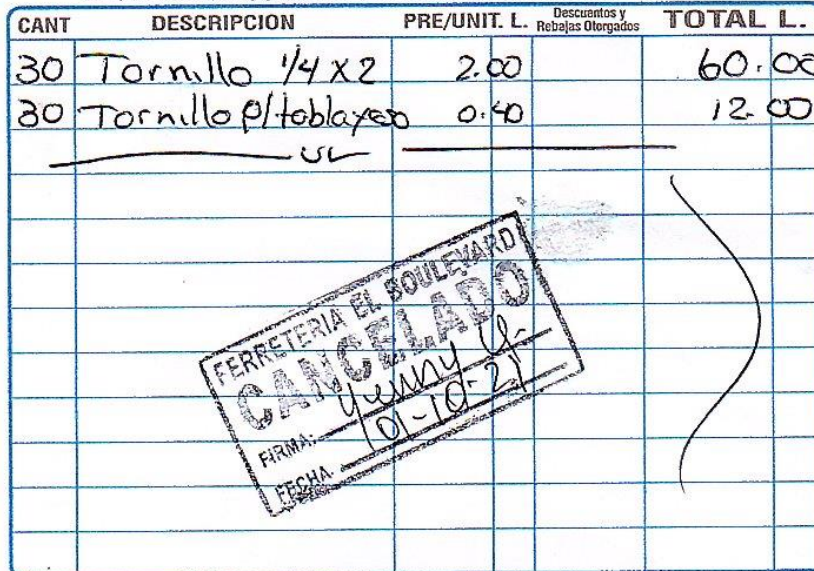 CANT DESCRIPCION PRE/UNIT. L. Descuentos y Rebajas Otorgados TOTAL L.
30 Tornillo 1/4 x 2 2.00 60.00
30 Tornillo p/tablayeso 0.40 12.00
FERRETERIA EL BOULEVARD
CANCELADO
FIRMA: Yenny
FECHA 01-10-21